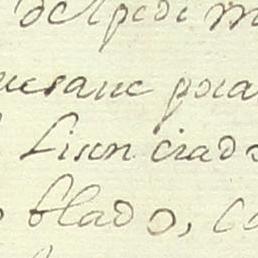 delpedi m
uesane poia
Lisen ciado
blado, Co